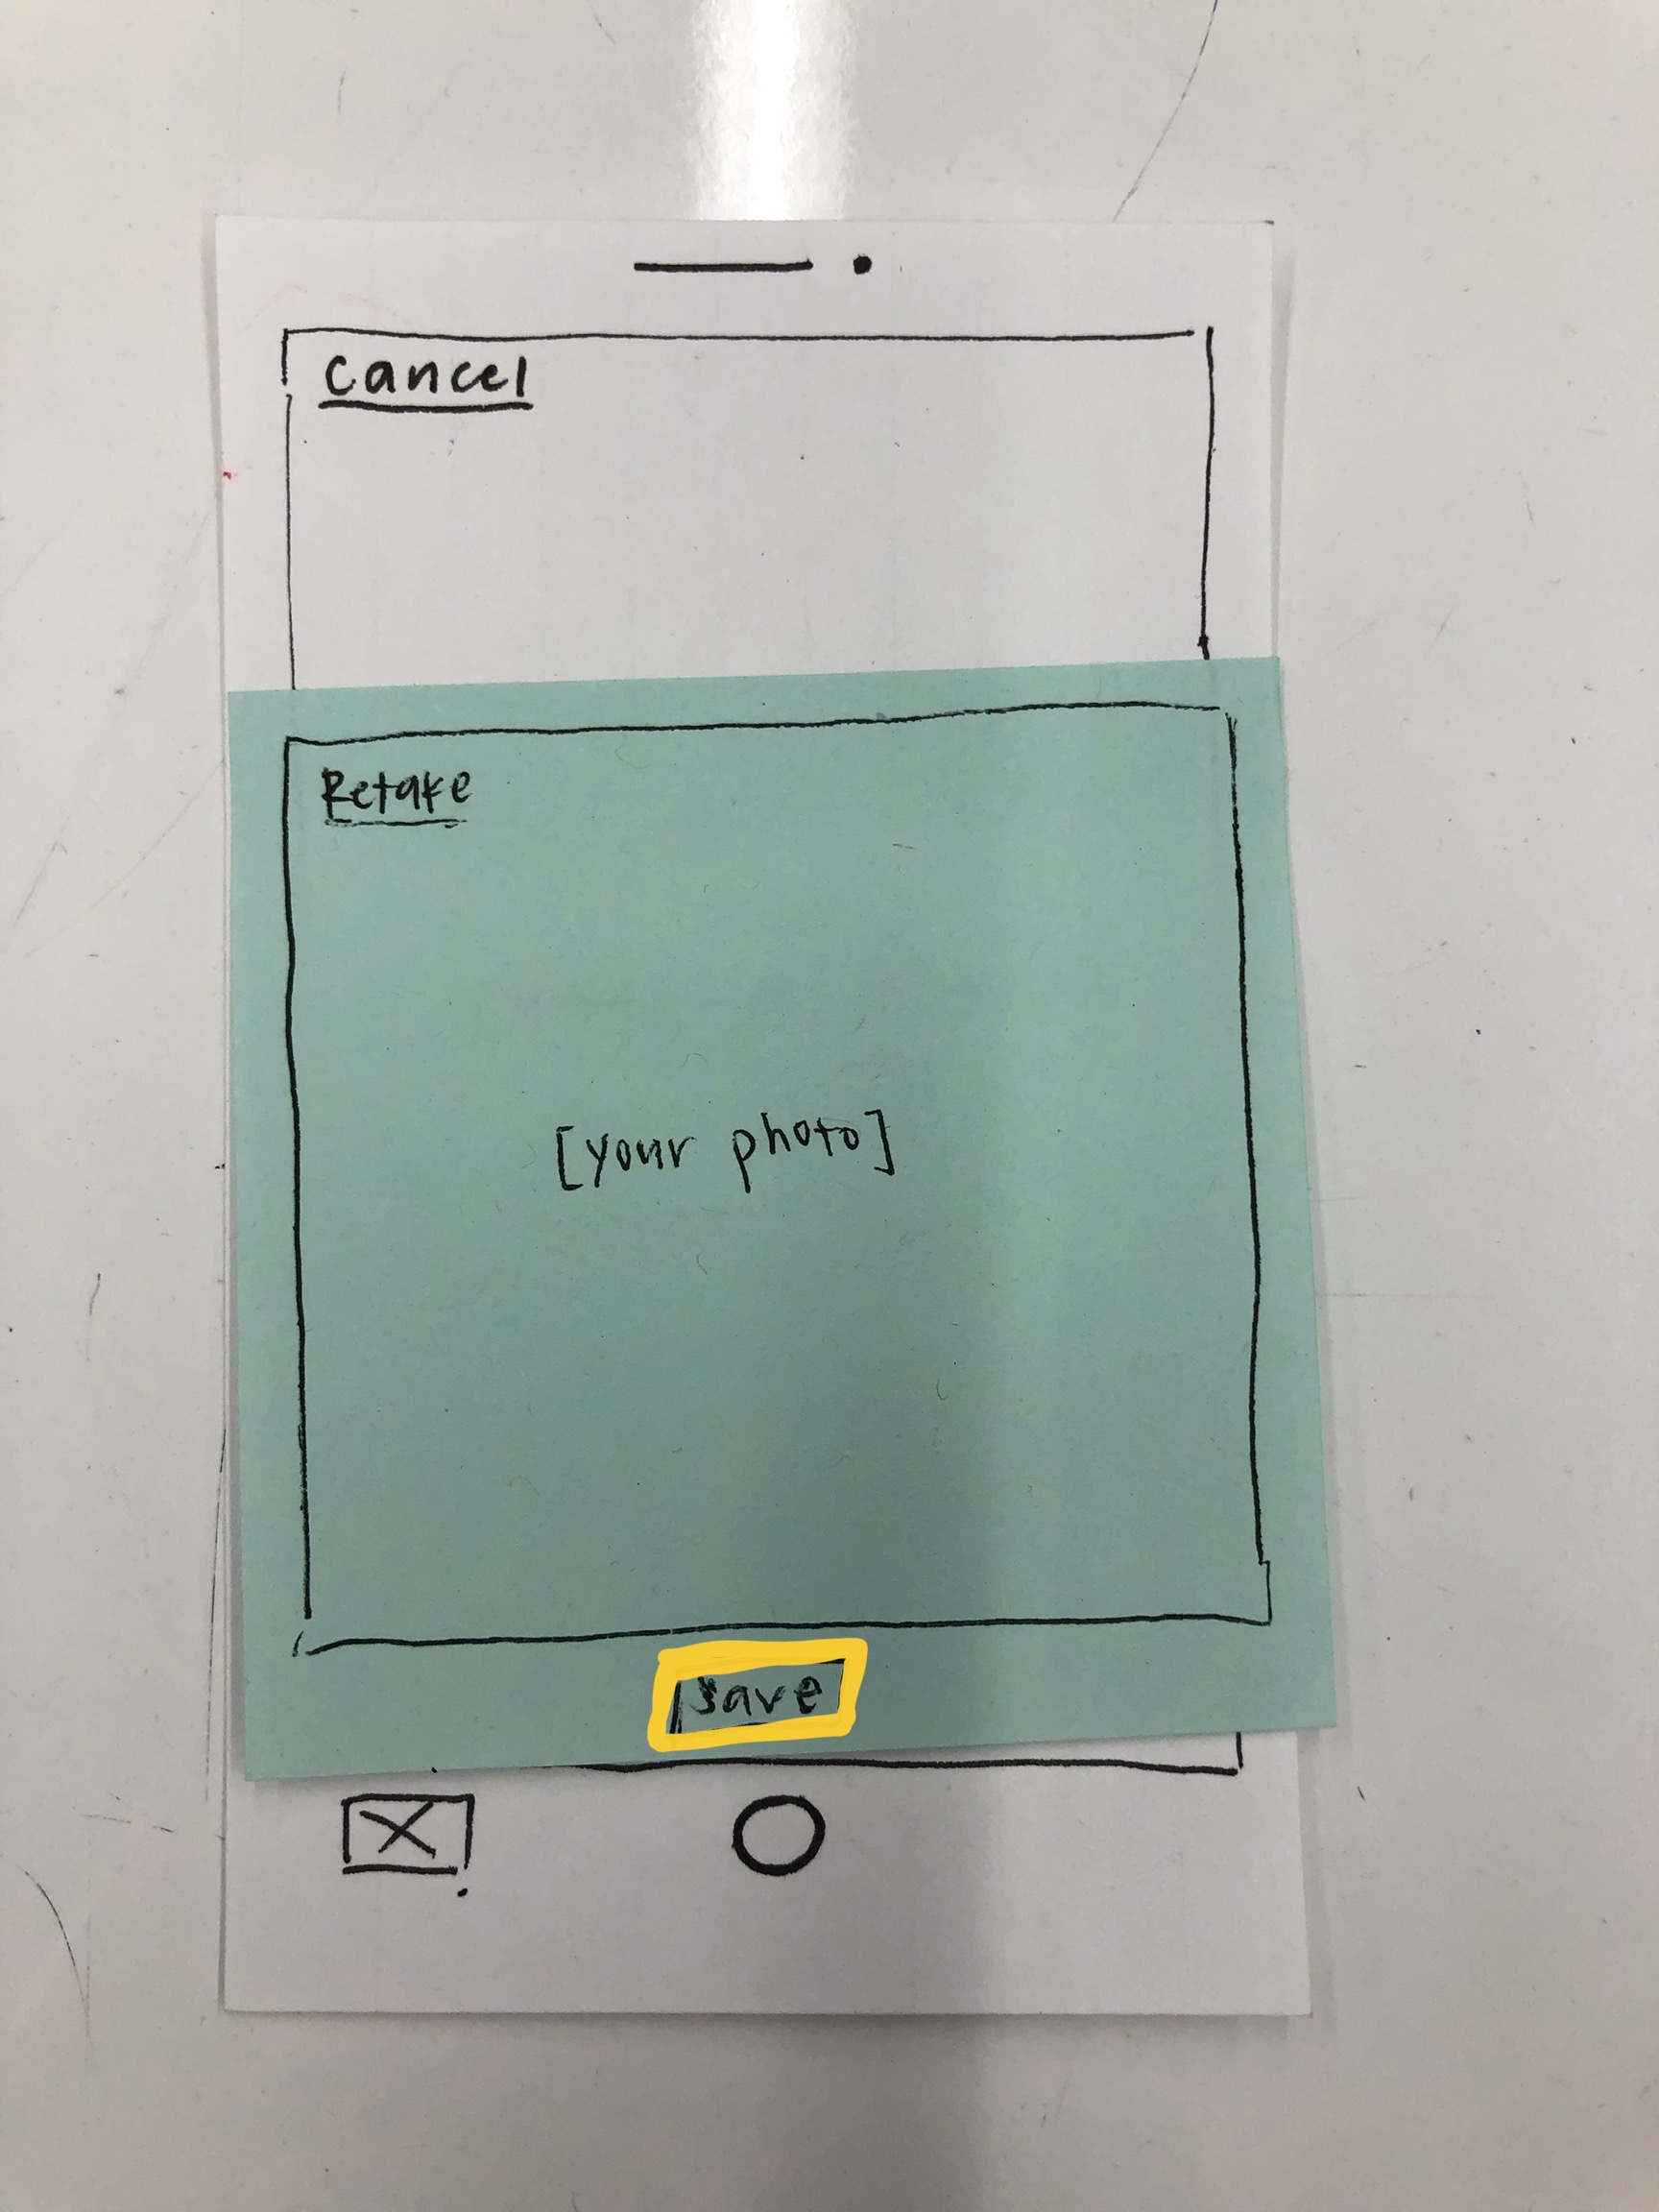 cancel
Retake
[your photo]
save